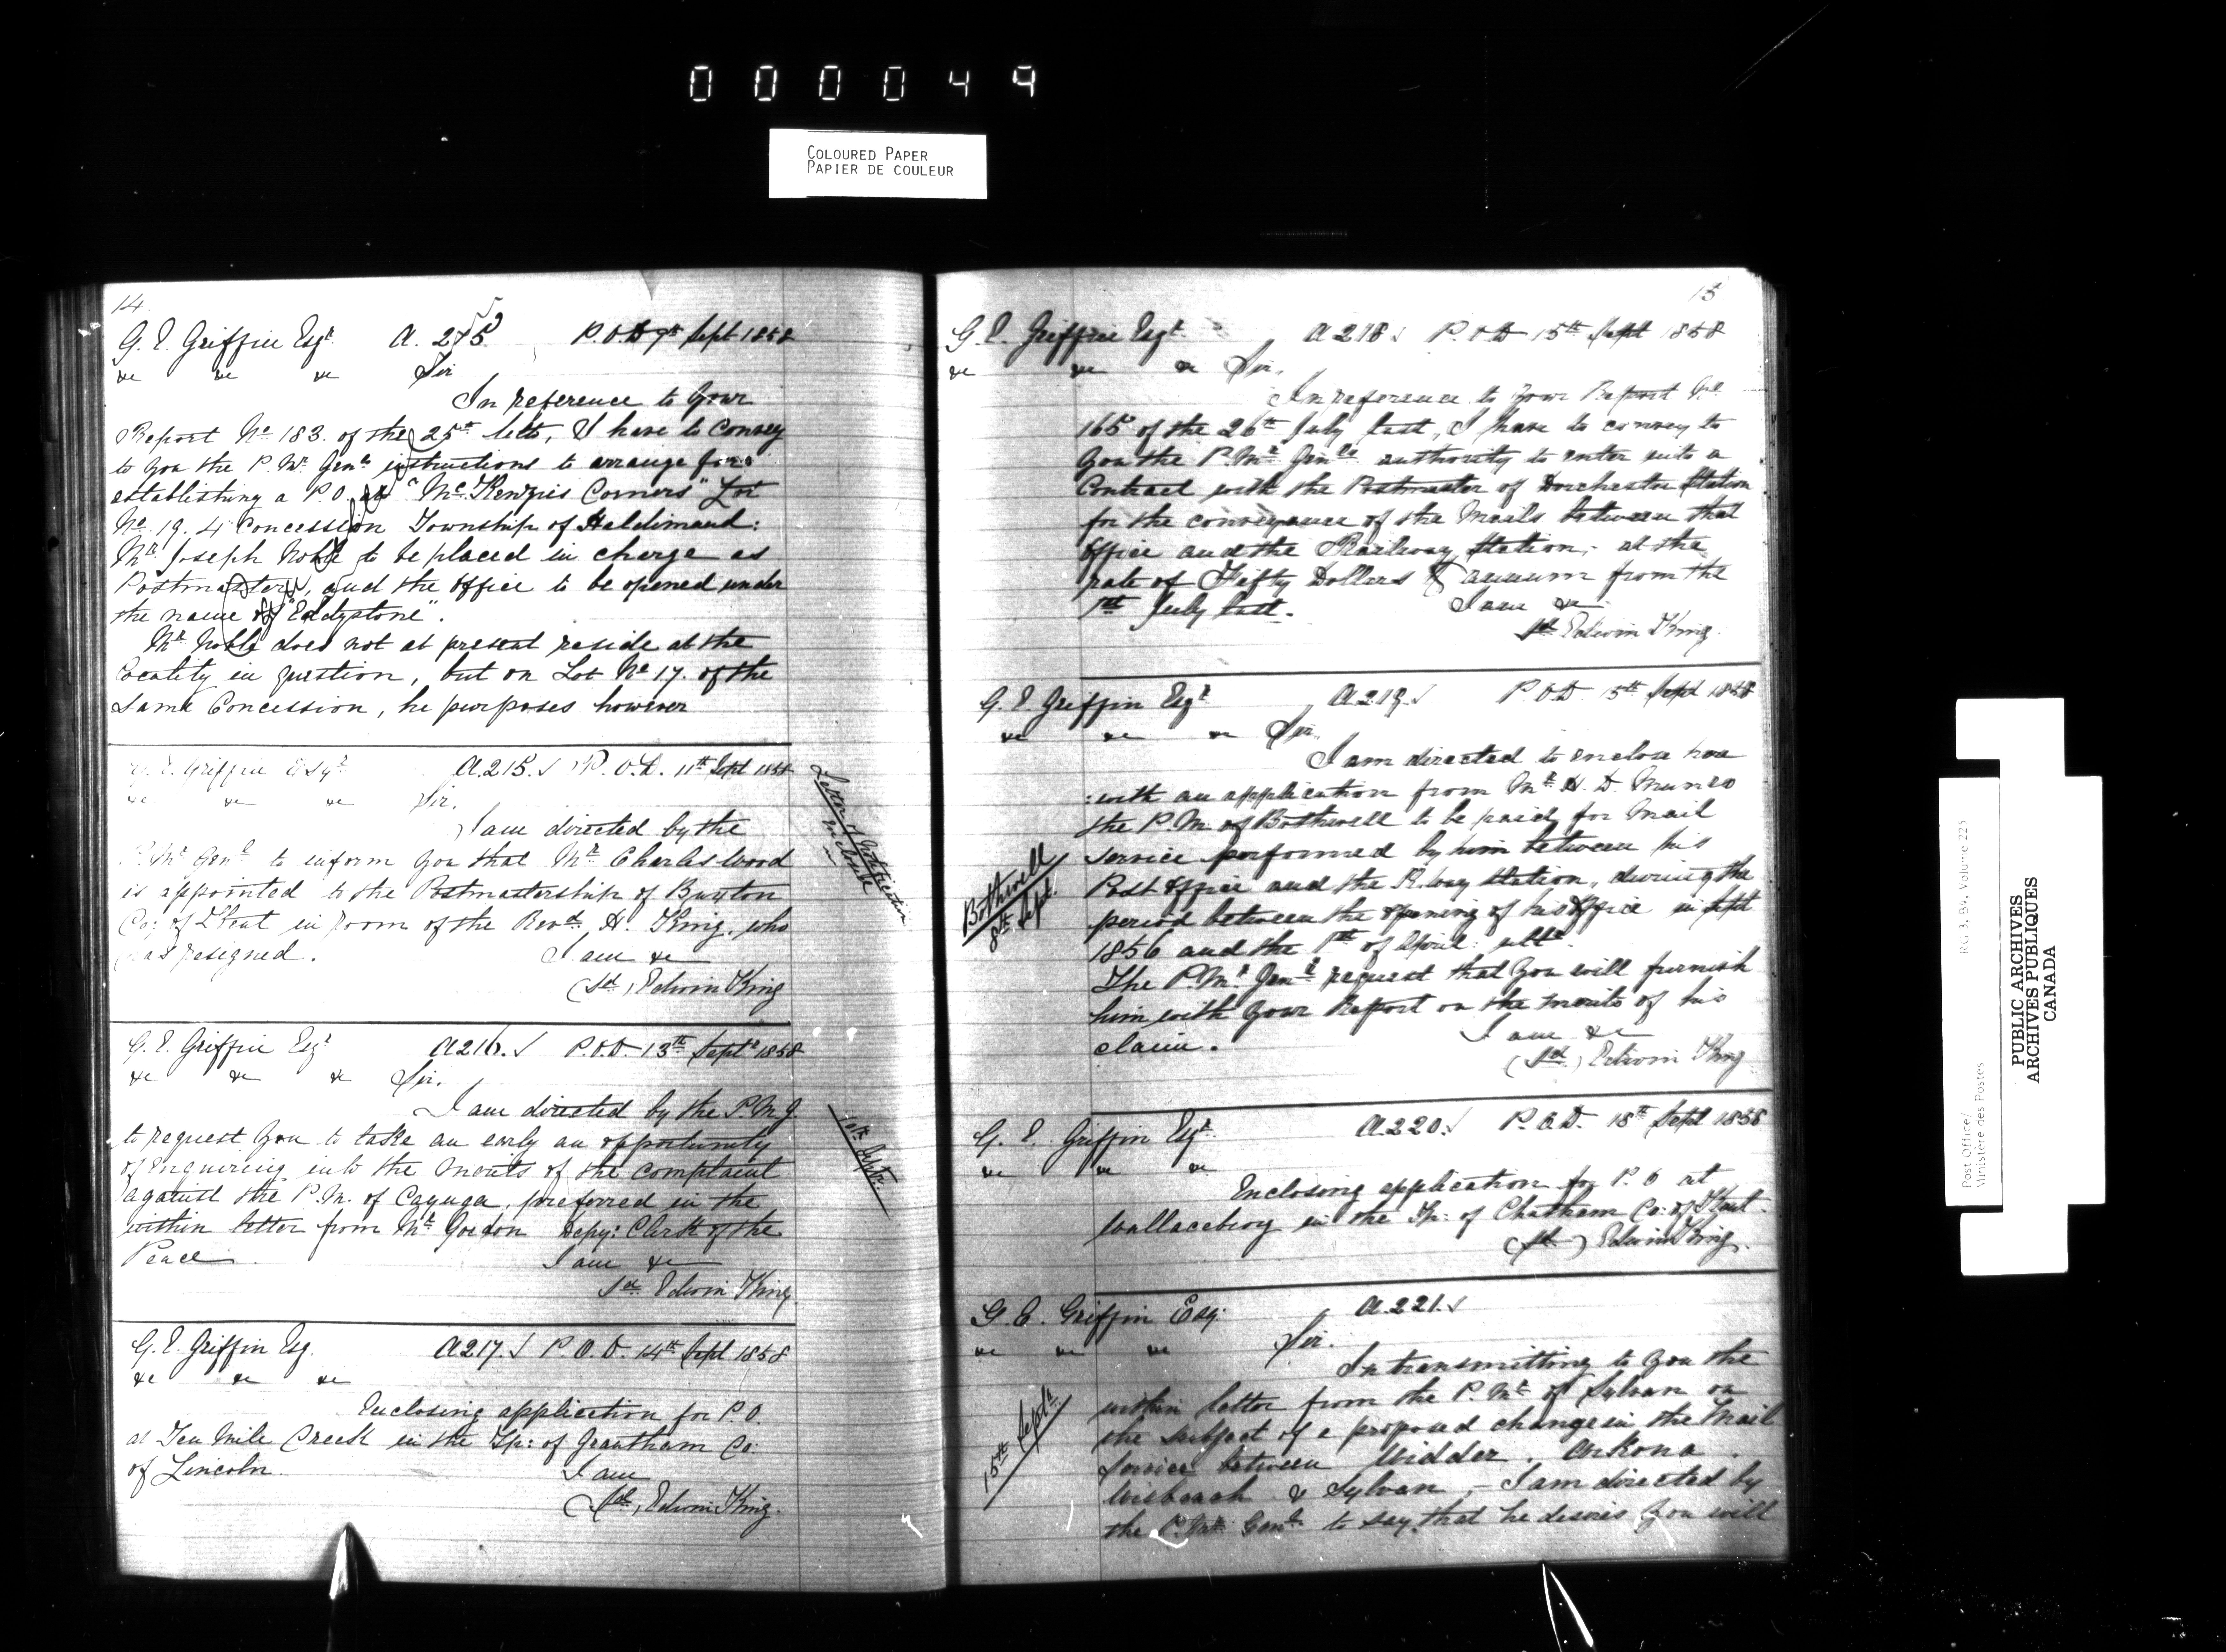 000049
COLOURED PAPER
PAPIER DE COULEUR
14.
G. E. Griffin Esqr. A. 215 P.O.D 9th Sept 1858
&c &c &c Sir
In reference to your
Report No 183. of the 25th Ulto, I have to convey
to you the P. Mr Genls instructions to arrange for
establishing a P.O. at "McKenzies Corners" Lot
No 19. 4 Concession Township of Haldimand:
Mr Joseph Noble to be placed in charge as
Postmaster, and the Office to be opened under
the name of "Eddystone".
Mr Noble does not at present reside at the
locality in question, but on Lot No 17. of the
same Concession, he purposes however
G. E. Griffin Esqr A.215. P.O.D. 11th Sept 1858
&c &c &c Sir.
I am directed by the
P. Mr Genl to inform you that Mr Charles Wood
is appointed to the Postmastership of Buxton
Co: of Kent in room of the Revd. H. King. who
has resigned. I am &c
(Sd), Edwin King
G. E. Griffin Esqr A216. P.O.D. 13th Septr 1858
&c &c &c Sir.
I am directed by the P.M.G.
to request you to take an early an opportunity
of enquiring into the merits of the complaint
against the P.M. of Cayuga, preferred in the
within letter from Mr Gordon Depy: Clerk of the
Peace I am &c
Sd. Edwin King
10th Septr.
G. E. Griffin Esq. A217. P.O.D. 14th Sept 1858
&c &c &c
Enclosing application for P.O.
at Ten Mile Creek in the Tp: of Grantham Co:
of Lincoln. I am
(Sd), Edwin King.
15
G. E. Griffin Esqr. A218 P.O.D 15th Sept 1858
&c &c &c Sir,
In reference to your Report No
165 of the 26th July last, I have to convey to
you the P. Mr Genls authority to enter into a
Contract with the Postmaster of Dorchester Station
for the conveyance of the Mails between that
Office and the Railway Station, at the
rate of Fifty Dollars ⅌ annum from the
1st July last. I am &c
Sd Edwin King.
G. E. Griffin Esqr A219. P.O.D. 15th Sept 1858
&c &c &c Sir,
I am directed to enclose here
:with an application from Mr H. D. Munro
the P.M. of Bothwell to be paid for Mail
service performed by him between his
Post Office and the R.way Station, during the
period between the opening of his Office in Sept
1856 and the 1st of April ulto.
The P. Mr Genl request that you will furnish
him with your Report on the merits of his
claim. I am &c
(Sd.) Edwin King
Bothwell
8th Sept.
G. E. Griffin Esqr. A220. P.O.D. 18th Sept 1858
&c &c &c
Enclosing application for P.O at
Wallaceburg in the Tp: of Chatham Co: of Kent.
(Sd) Edwin King.
G. E. Griffin Esq: A.221.
&c &c &c Sir.
In transmitting to you the
within letter from the P. Mr of Sylvan on
the subject of a proposed change in the Mail
Service between Widder, Arkona,
Wisbeach & Sylvan, - I am directed by
the P. Mr Genl to say that he desires you will
15th Septr.
Post Office/
Ministère des Postes
RG 3, B4, Volume 225
PUBLIC ARCHIVES
ARCHIVES PUBLIQUES
CANADA